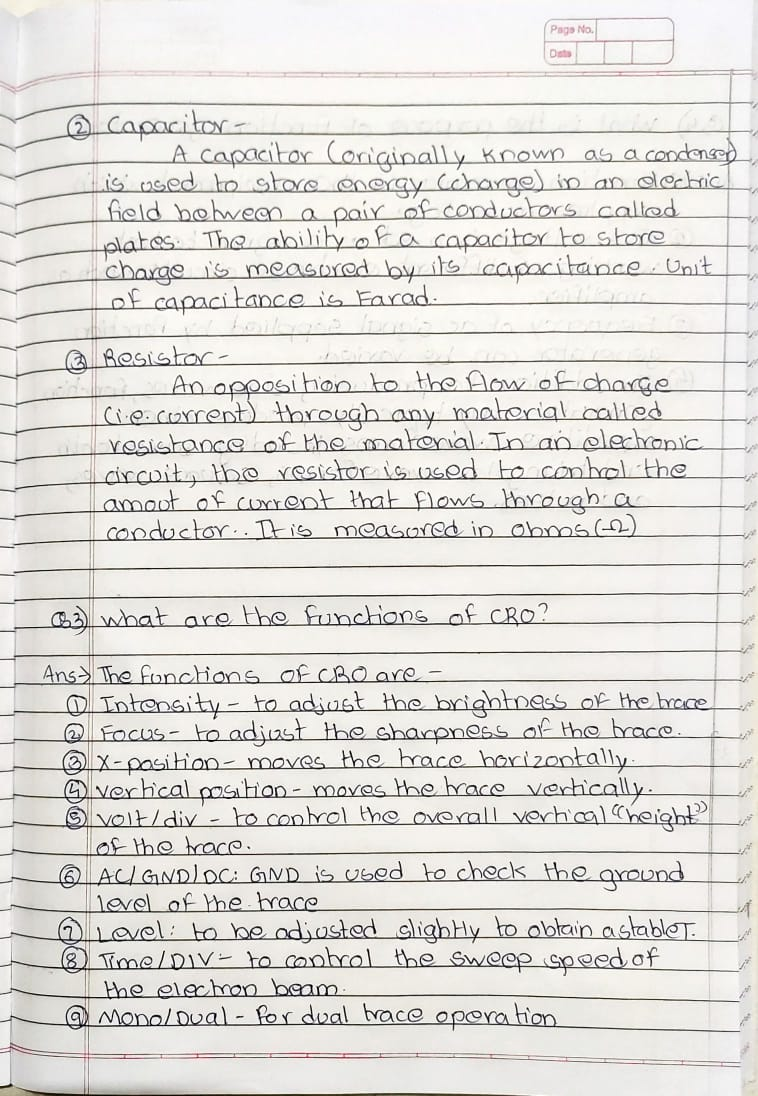 Page No.
Date
② Capacitor -
A capacitor (originally known as a condenser)
is used to store energy (charge) in an electric
field between a pair of conductors called
plates. The ability of a capacitor to store
charge is measured by its capacitance. Unit
of capacitance is Farad.
③ Resistor -
An opposition to the flow of charge
(i.e. current) through any material called
resistance of the material. In an electronic
circuit, the resistor is used to control the
amout of current that flows through a
conductor.. It is measured in ohms (Ω)
Q3) What are the functions of CRO?
Ans→ The functions of CRO are -
① Intensity - to adjust the brightness of the trace
② Focus - to adjust the sharpness of the trace.
③ X-position - moves the trace horizontally.
④ vertical position - moves the trace vertically.
⑤ volt/div - to control the overall vertical "height"
of the trace.
⑥ AC/GND/DC: GND is used to check the ground
level of the trace
⑦ Level: to be adjusted slightly to obtain a stable T.
⑧ Time/DIV - to control the sweep speed of
the electron beam.
⑨ Mono/Dual - for dual trace operation